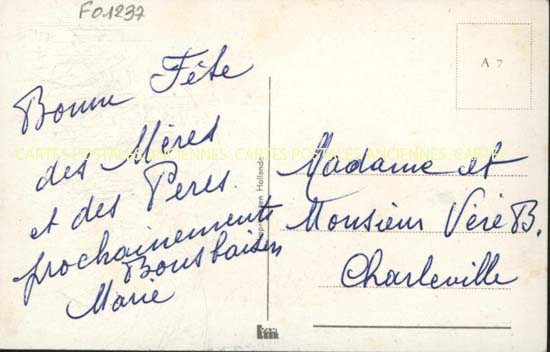 F01237
A 7
Bonne Fête
des Mères
et des Peres.
prochainements
Bons baisers
Marie
CARTES POSTALES ANCIENNES CARTES POSTALES ANCIENNES CARTES
en Hollande
Madame et
Monsieur Véré B.
Charleville